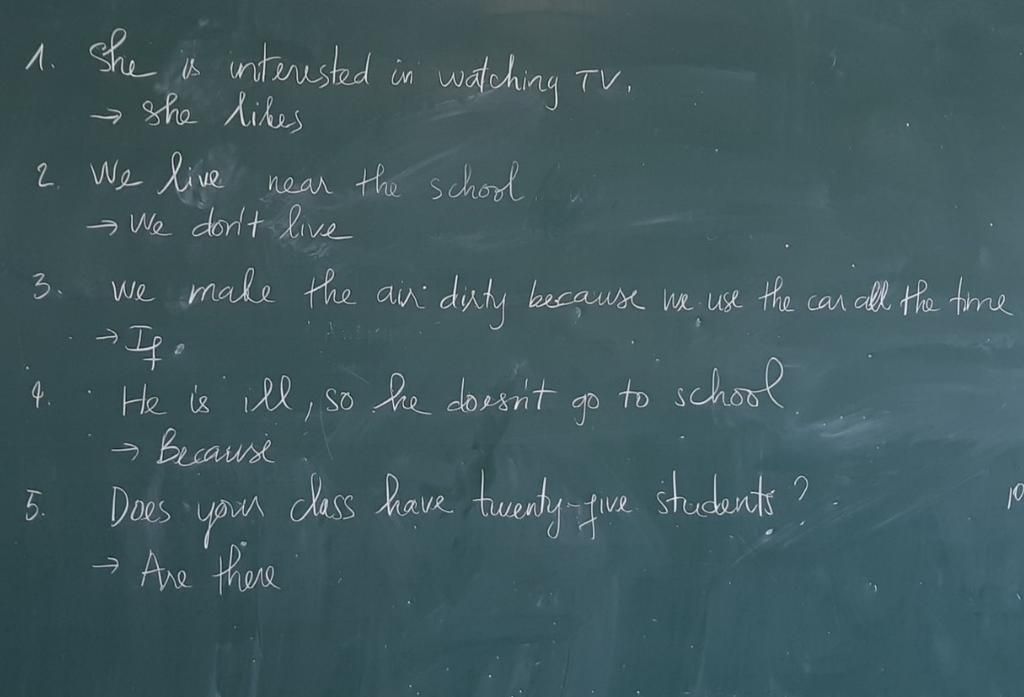 1. She is interested in watching TV.
→ She likes
2. We live near the school.
→ We don't live
3. we make the air dirty because we use the car all the time
→ If
4. He is ill, so he doesn't go to school.
→ Because
5. Does your class have twenty-five students?
→ Are there